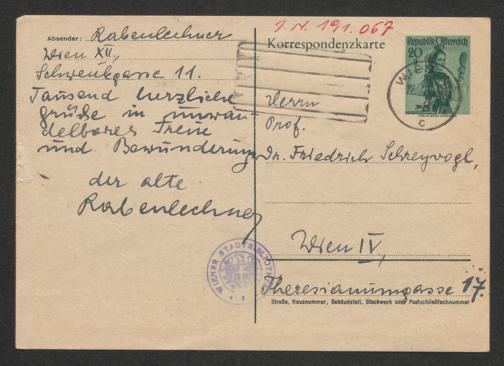 J. N. 191.067
Absender: Rabenlechner
Wien XII,
Schwenkgasse 11.
Tausend herzliche
grüße in unwan-
delbarer Treue
und Bewunderung
der alte
Rabenlechner
WIENER STADTBIBLIOTHEK
Korrespondenzkarte
Republik Österreich
20
WIEN
c
Herrn
Prof.
Dr. Friedrich Schreyvogl,
Wien IV,
Theresianumgasse 17.
Straße, Hausnummer, Gebäudeteil, Stockwerk oder Postschließfachnummer